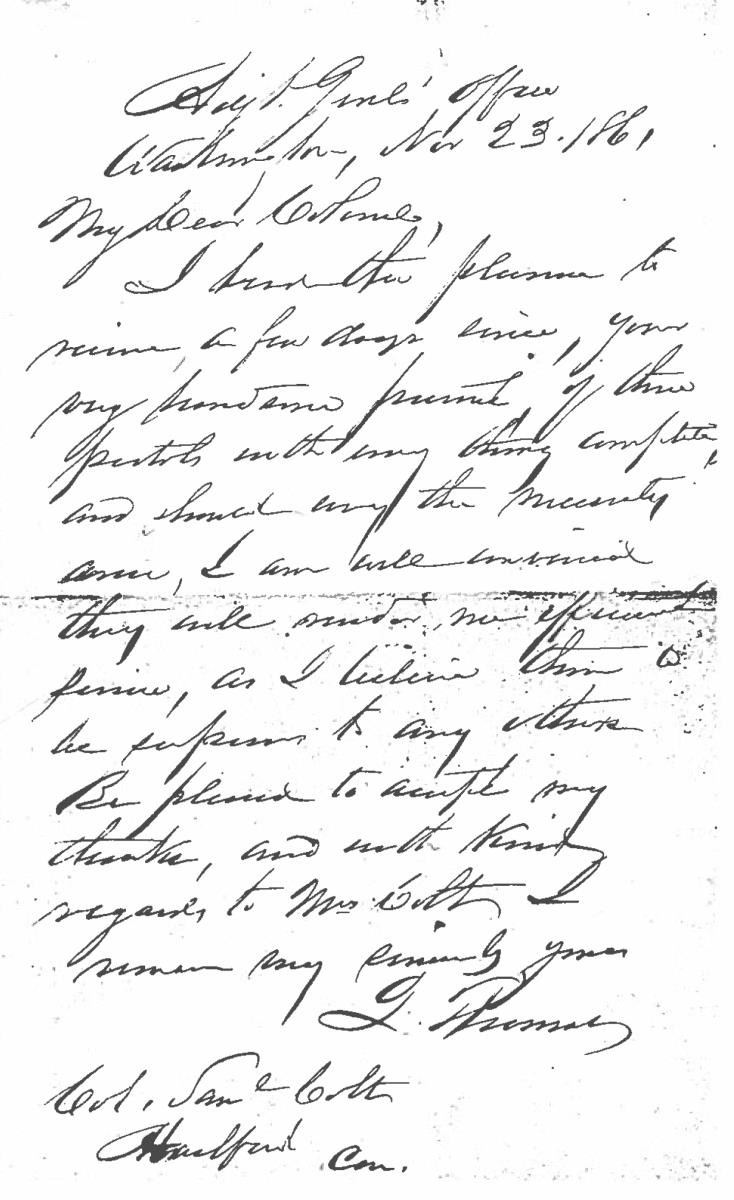 Adjt. Genls' Office
Washington, Nov 23. 1861
My Dear Colonel,
I had the pleasure to
receive, a few days since, your
very handsome present, of three
pistols with every thing complete,
and should ever the necessity
arise, I am well convinced
they will render me efficient
service, as I believe them to
be superior to any others
Be pleased to accept my
thanks, and with kind
regards to Mrs. Colt, I
remain very sincerely yours
L. Thomas
Col. Saml Colt
Hartford Con.